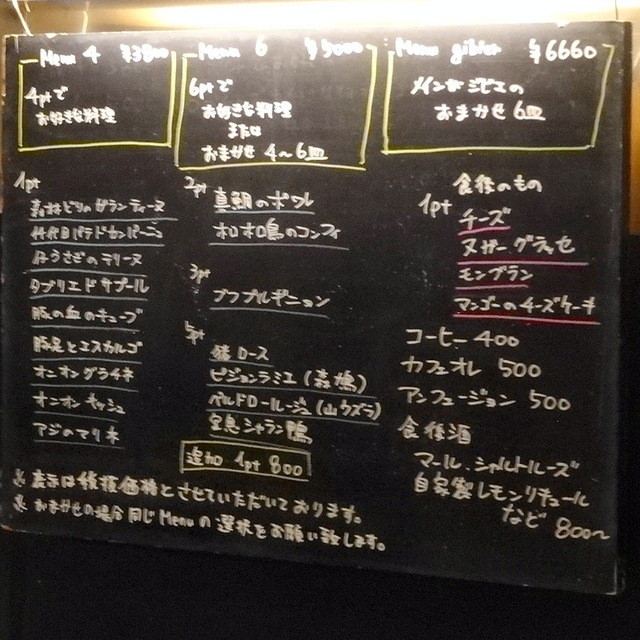 Menu 4 ¥3800
4ptで
お好きな料理
Menu 6 ¥5000
6ptで
お好きな料理
または
おまかせ 4〜6皿
Menu gibier ¥6660
メインがジビエの
おまかせ 6皿
1pt
森林どりのガランティーヌ
竹代目パテドカンパーニュ
仔うさぎのテリーヌ
タブリエ ド サプール
豚の血のキューブ
豚足とエスカルゴ
オニオングラチネ
オニオンキッシュ
アジのマリネ
2pt
真鯛のポワレ
ホロホロ鳥のコンフィ
3pt
ブフブルギニョン
ロース
ピジョンラミエ(森鳩)
ペルドロールージュ(山ウズラ)
シャラン鴨
追加 1pt 800
食後のもの
1pt
チーズ
ヌガーグラッセ
モンブラン
マンゴーのチーズケーキ
コーヒー 400
カフェオレ 500
アンフュージョン 500
食後酒
マール、シャルトルーズ
自家製レモンリキュール
など 800〜
※表示は税抜価格とさせていただいております。
※おまかせの場合同じMenuの選択をお願い致します。